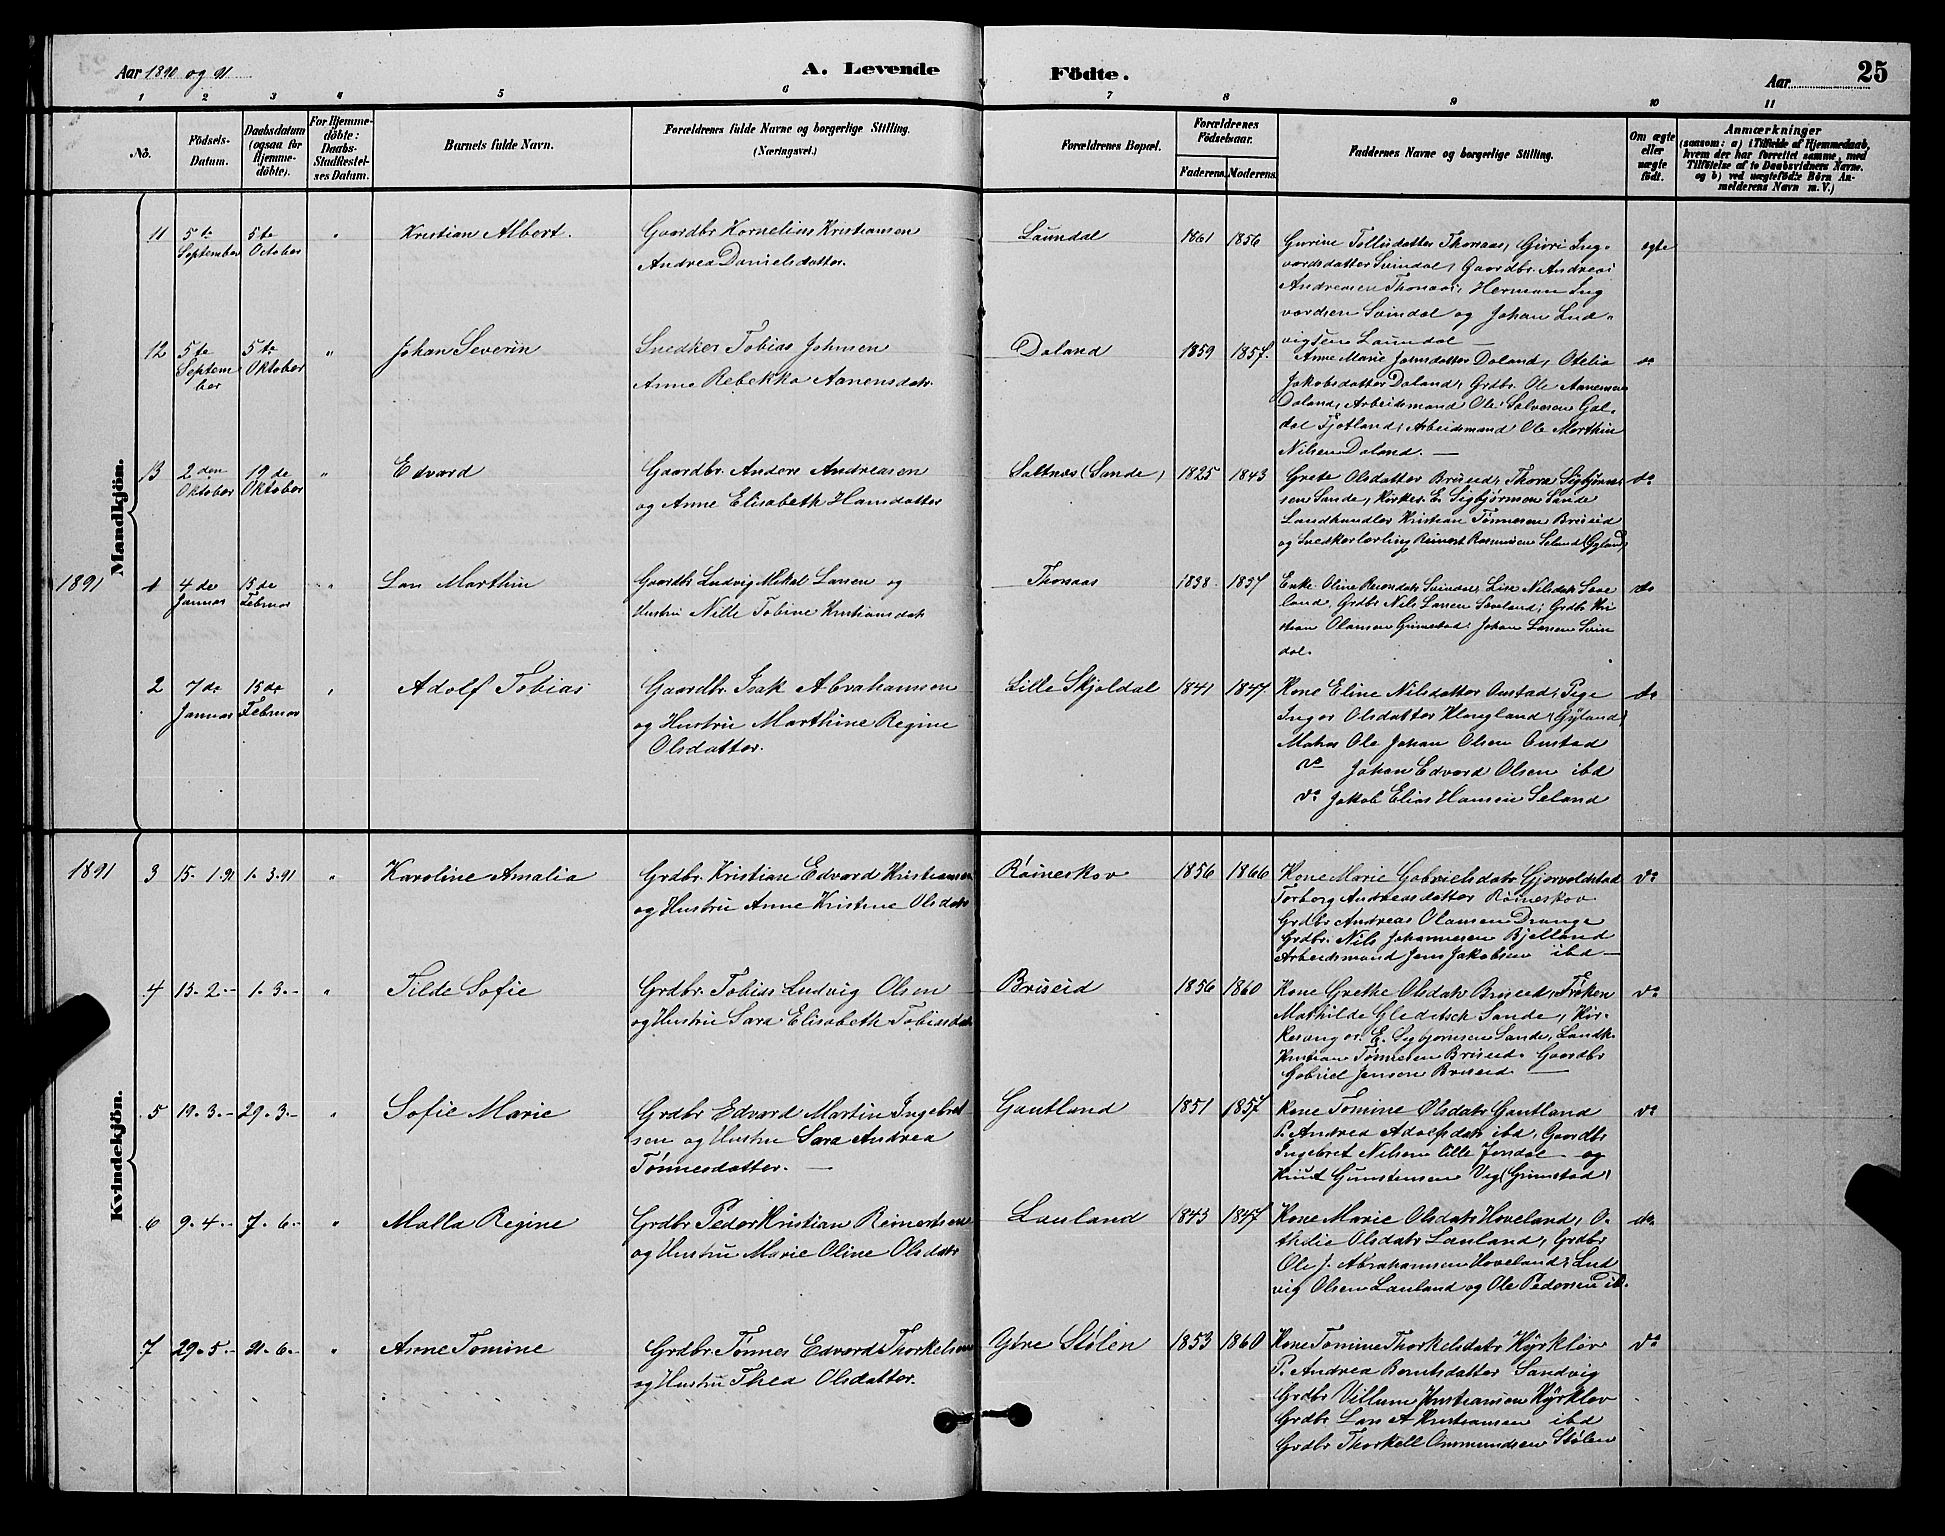 Aar 1890 og 91
A. Levende Födte.
Aar 25
1 2 3 4 5 6 7 8 9 10 11
No.
Födsels-Datum.
Daabsdatum (ogsaa for Hjemme-döbte).
For Hjemme-döbte: Daabs-Stadfæstel-ses Datum.
Barnets fulde Navn.
Forældrenes fulde Navne og borgerlige Stilling. (Næringsvei.)
Forældrenes Bopæl.
Forældrenes Födselsaar.
Faderens. Moderens.
Faddernes Navne og borgerlige Stilling.
Om ægte eller uægte födt.
Anmærkninger
(saasom: a) i Tilfælde af Hjemmedaab,
hvem der har forrettet samme, med
Tilföielse af to Daabsvidners Navne.
og b) ved uægtefödte Börn An-
melderens Navn m. V.)
Mandkjön.
11 5te September 5te October " Kristian Albert. Gaardbr Kornelius Kristiansen
Andrea Danielsdatter.
Laundal 1861 1856
Gurine Tollisdatter Thonaas, Givri Ing-
vardsdatter Svindal, Gaardbr. Andreas
Andreasen Thonaas, Herman Ing
vardsen Svindal og Johan Lud-
vigsen Laundal —
ægte
12 5te Septem ber 5te Oktober " Johan Severin Snedker Tobias Johnsen
Anne Rebekka Aanensdatr.
Daland 1859 1857.
Anne Marie Johnsdatter Daland, Otelia
Jakobsdatter Daland, Grdbr. Ole Aanensen
Daland, Arbeidsmand Ole Salvesen Gal-
dal Fjotland, Arbeidsmand Ole Marthin
Nilsen Daland. —
do
13 2den Oktober 19de Oktober " Edvard Gaardbr. Anders Andreasen
og Anne Elisabeth Hansdatter
Saltnæs (Sande) 1825 1843
Grete Olsdatter Briseid, Thora Sigbjørn-
sen Sande, Kirkes. E. Sigbjørnsen Sande
Landhandler Kristian Tønnesen Briseid
og Snedkerlærling Reinert Rasmussen Seland (Gyland)
do
1891
1 4de Januar 15de Februar " Lars Marthin Gaardbr Ludvig Mikal Larsen og
Hustru Nille Tobine Kristiansdatr
Thonaas 1838 1837
Enke Oline Svindal, Lise Nilsdatr Save
land, Grdbr Nils Larsen Saveland, Grdbr Kri
stian Olausen Grimestad, Johan Larsen Svin
dal.
do
2 7de Januar 15de Februar " Adolf Tobias Gaardbr. Isak Abrahamsen
og Hustru Marthine Regine
Olsdatter.
Lille Skjoldal 1841 1847.
Kone Eline Nilsdatter Omstad, Pige
Inger Olsdatter Klungland (Gyland)
Matros Ole Johan Olsen Omstad
do Johan Edvard Olsen ibd
do Jakob Elias Hansen Seland
do
Kvindekjön.
1891
3 15.1.91 1.3.91 " Karoline Amalia Grdbr. Kristian Edvard Kristiansen
og Hustru Anne Kristine Olsdatr
Røineskov 1856 1866
Kone Marie Gabrielsdatr Gjervoldstad
Torborg Andreasdatter Røineskov
Grdbr Andreas Olausen Drange
Grdbr. Nils Johannesen Bjelland
Arbeidsmand Jens Jakobsen ibd —
do
4 15.2.– 1.3.– " Tilde Sofie Grdbr. Tobias Ludvig Olsen
og Hustru Sara Elisabeth Tobiasdatr
Briseid 1856 1860
Kone Grethe Olsdatr Briseid, Frøken
Mathilde Gleditsch Sande, Kir-
kesanger. E. Sigbjørnsen Sande, Landh.
Kristian Tønnesen Briseid. Gaardbr
Gabriel Jensen Briseid —
do
5 19.3.– 29.3.– " Sofie Marie Grdbr Edvard Martin Ingebret
sen og Hustru Sara Andrea
Tønnesdatter. —
Gautland 1851 1857
Kone Tomine Olsdatr Gautland
P. Andrea Adolfsdatr ibd, Gaardbr
Ingebret Nilsen Lille Jondal – og
Knut Gunstensen Vig (Grimstad)
do
6 9.4.– 7.6.– " Malla Regine Grdbr Peder Kristian Reinertsen
og Hustru Marie Oline Olsdatr
Lauland 1843 1847
Kone Marie Olsdatr Hoveland, O-
thelie Olsdatr Lauland, Grdbr
Ole J. Abrahamsen Hoveland, Lud
vig Olsen Lauland og Ole Pedersen ib.
do
7 29.5.– 21.6.– " Anne Tomine Grdbr. Tønnes Edvard Thorkelsen
og Hustru Thea Olsdatter.
Øvre Stølen 1853 1860
Kone Tomine Thorkelsdatr Kyrkløv
P. Andrea Berntsdatter Sandvig
Grdbr Villum Kristiansen Kyrkløv
Grdbr Lars A Kristiansen ibd
Grdbr Thorkell Ommundsen Stølen
do